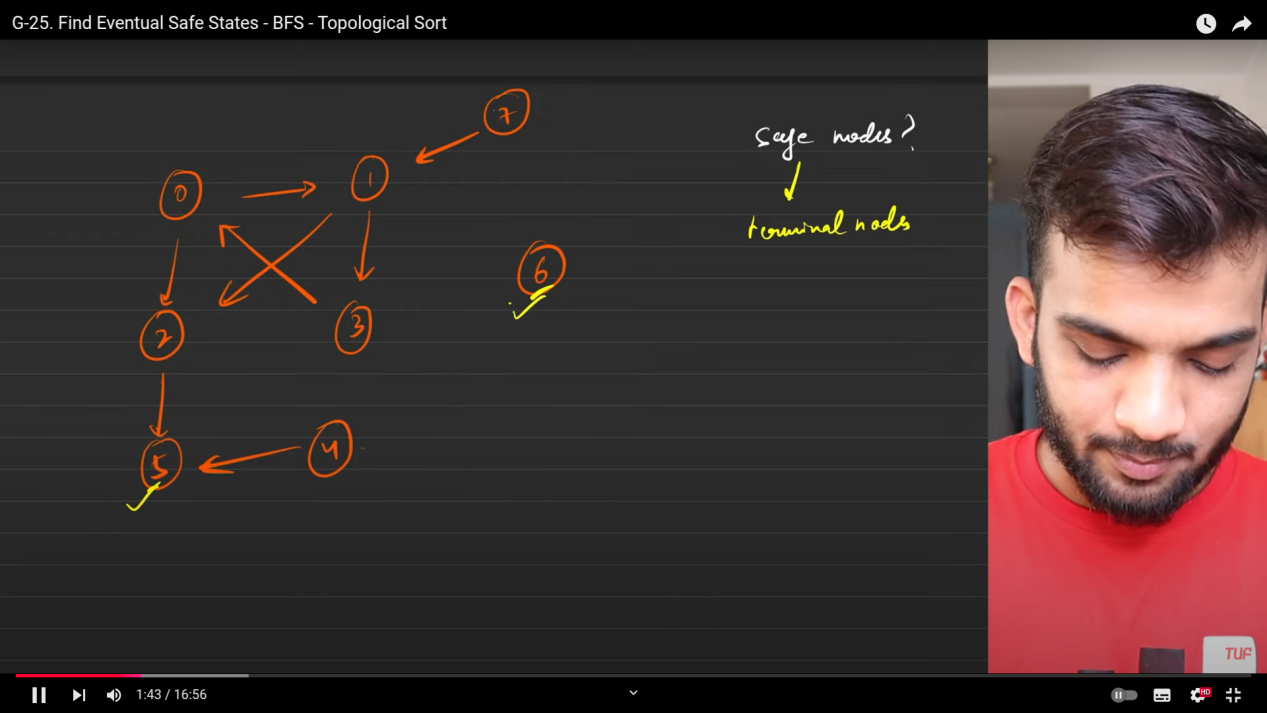 G-25. Find Eventual Safe States - BFS - Topological Sort
7
safe nodes?
0
1
terminal nodes
6
2
3
4
5
TUF
1:43 / 16:56
HD